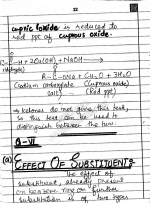 22
cupric oxide is reduced to
red ppt of cuprous oxide.
O
R-C-H + 2Cu(OH) + NaOH →
O
R-C-ONa + Cu2O + 3H2O
(Sodium carboxylate (cuprous oxide)
salt) (Red ppt)
→ Ketones do not give this test,
so this test can be used to
distinguish between the two.
Q-VI
(a) EFFECT OF SUBSTITUENT:
The effect of
substituent already present
on benzene ring on further
substitution is of two types